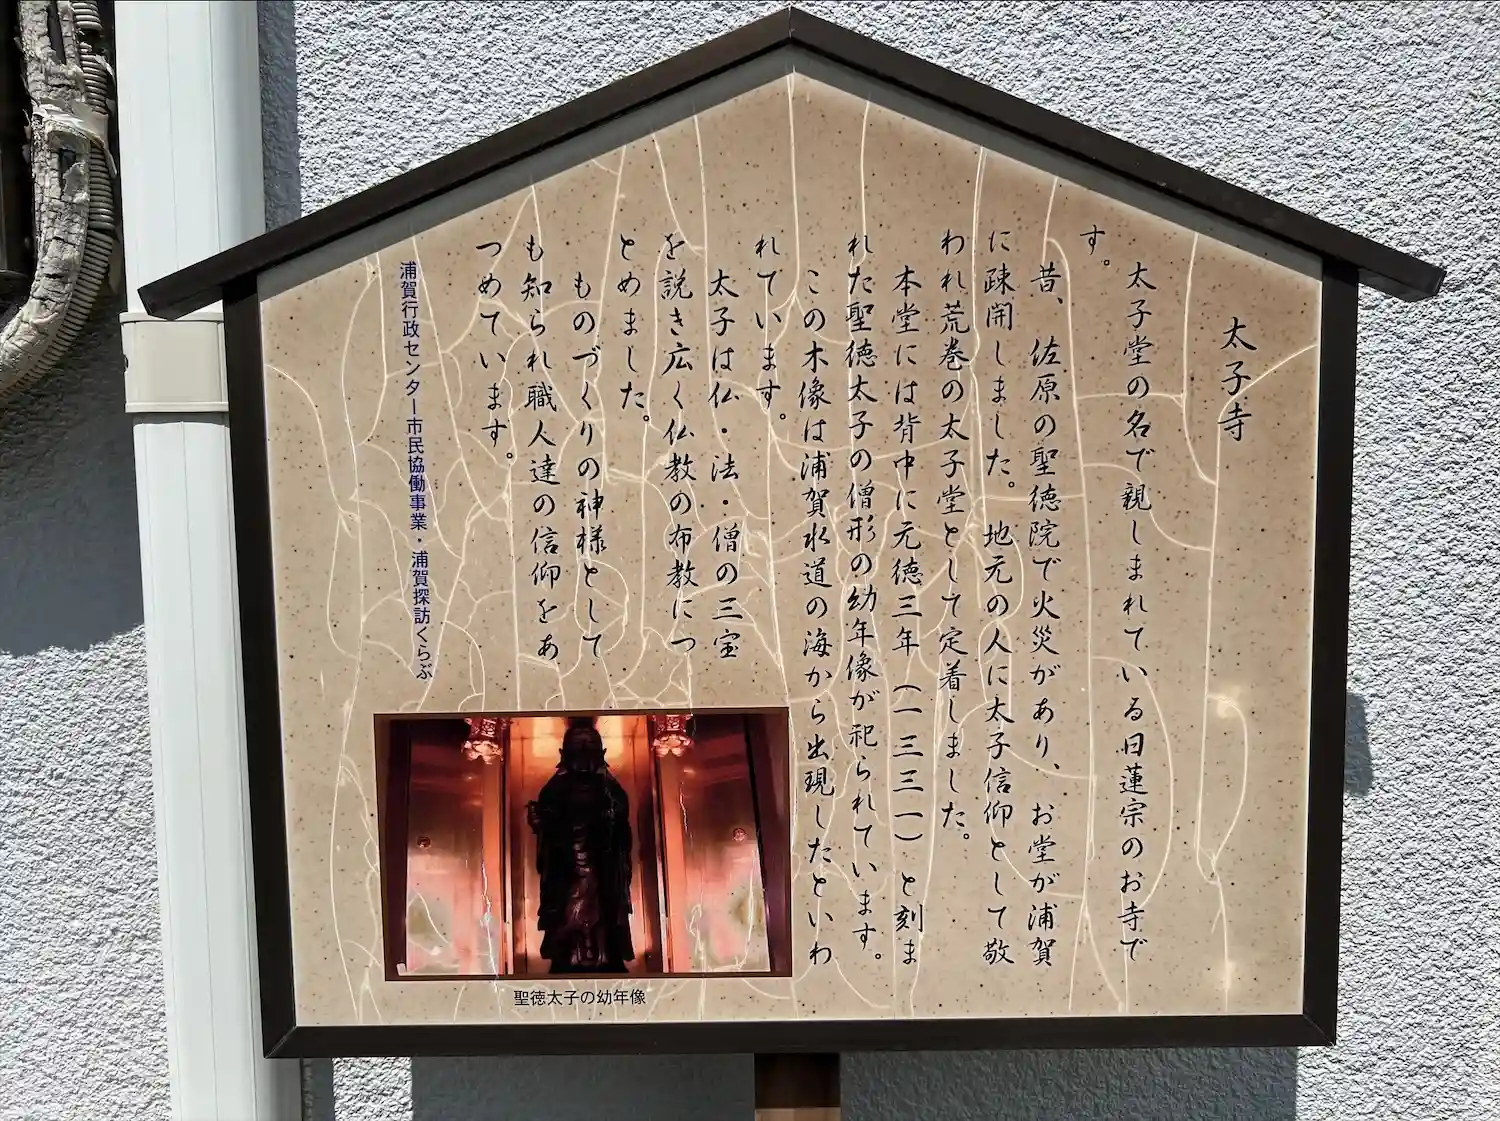 太子寺
太子堂の名で親しまれている日蓮宗のお寺で
す。
昔、佐原の聖徳院で火災があり、お堂が浦賀
に疎開しました。地元の人に太子信仰として敬
われ荒巻の太子堂として定着しました。
本堂には背中に元徳三年（一三三一）と刻ま
れた聖徳太子の僧形の幼年像が祀られています。
この木像は浦賀水道の海から出現したといわ
れています。
太子は仏・法・僧の三宝
を説き広く仏教の布教につ
とめました。
ものづくりの神様として
も知られ職人達の信仰をあ
つめています。
浦賀行政センター市民協働事業・浦賀探訪くらぶ
聖徳太子の幼年像